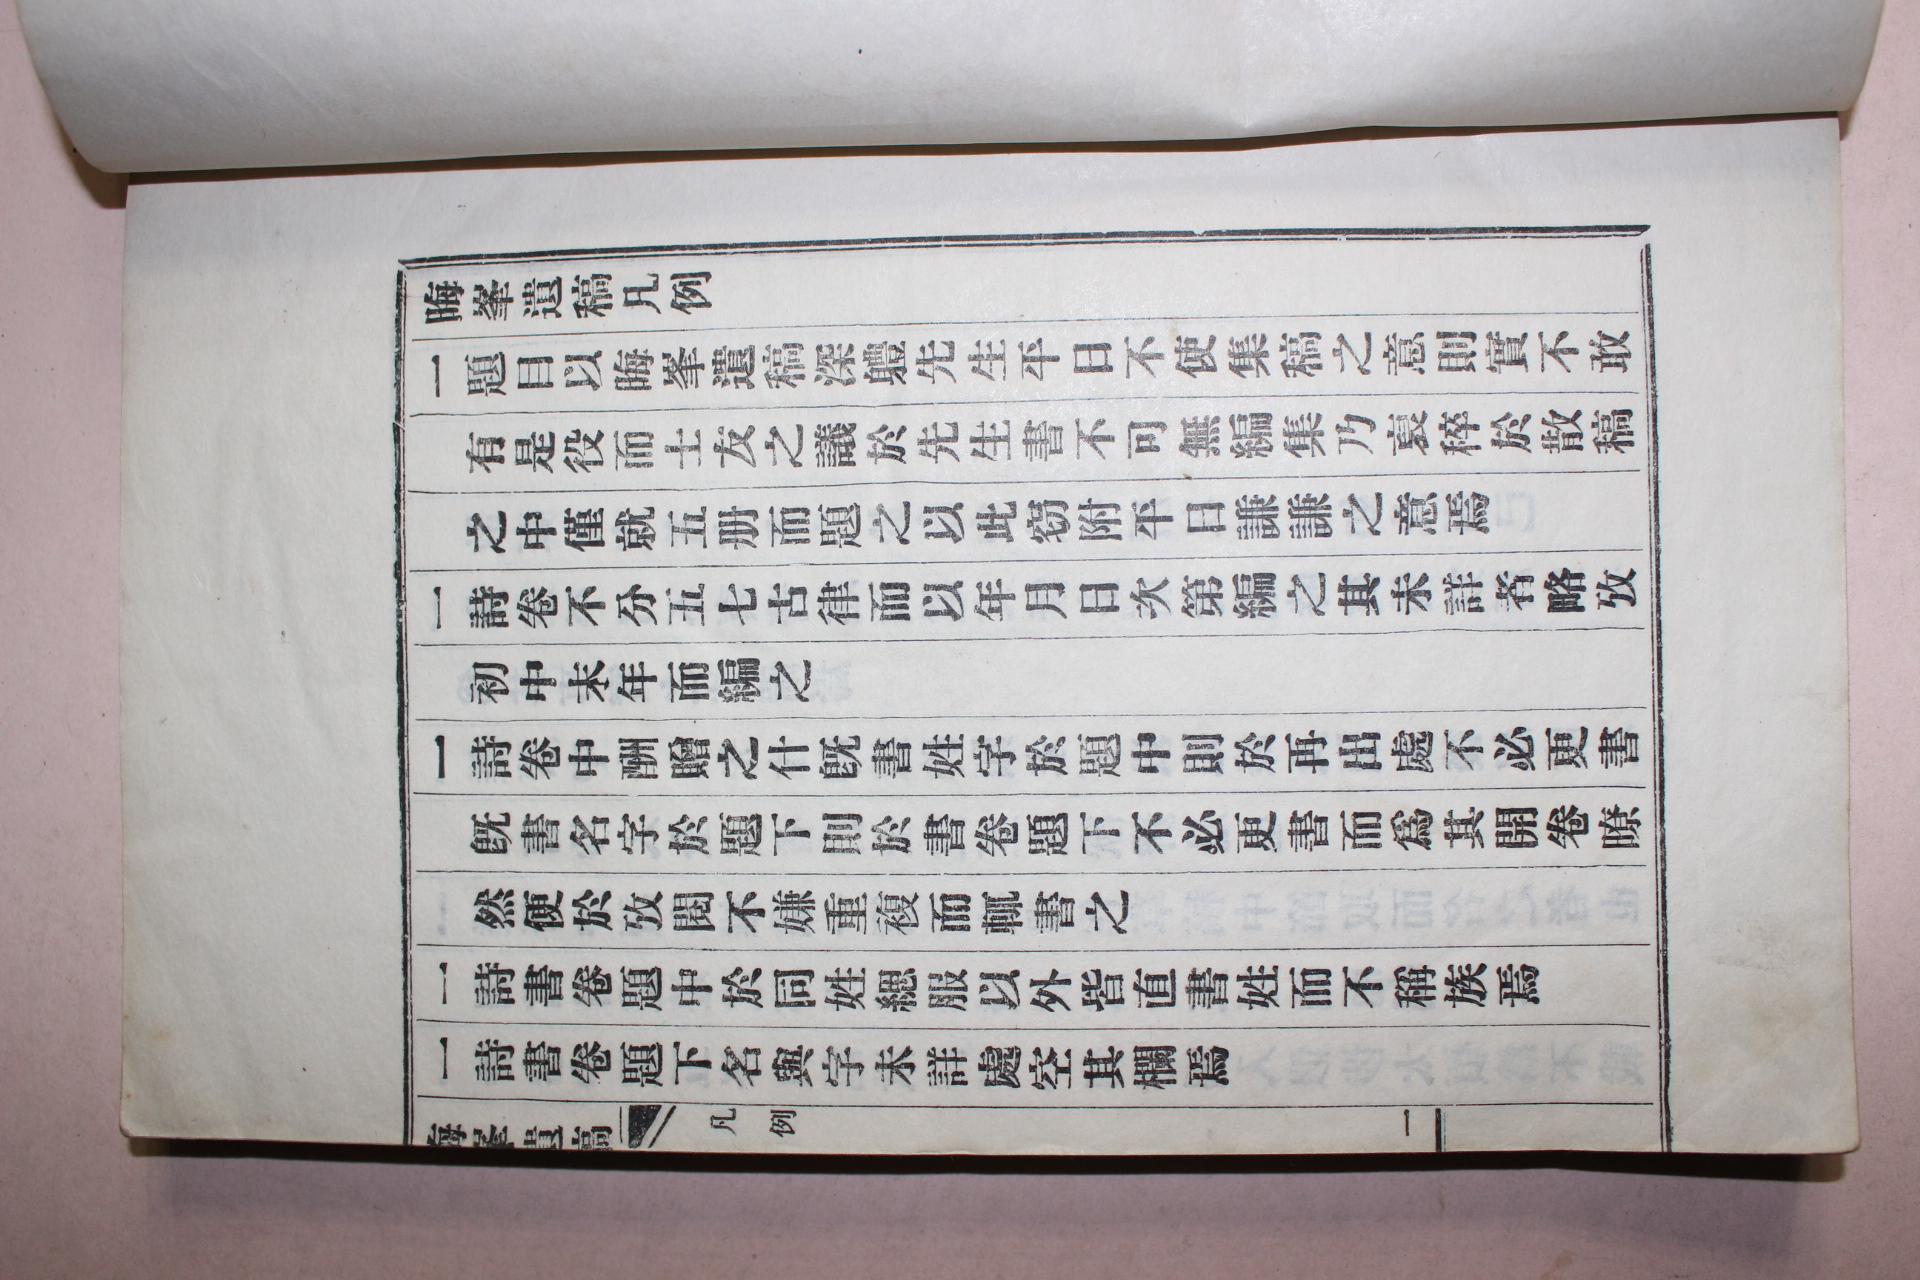 晦峯遺稿凡例
一題目以晦峯遺稿深軆先生平日不使集稿之意則實不敢
有是役而士友之議於先生書不可無編集乃裒稡於散稿
之中僅就五册而題之以此窃附平日謙謙之意焉
一詩卷不分五七古律而以年月日次第編之其未詳者略攷
初中末年而編之
一詩卷中酬贈之什旣書姓字於題中則於再出處不必更書
旣書名字於題下則於書卷題下不必更書而爲其開卷瞭
然便於攷閱不嫌重複而輒書之
一詩書卷題中於同姓緦服以外皆直書姓而不稱族焉
一詩書卷題下名與字未詳處空其欄焉
晦峯遺稿 凡例 一